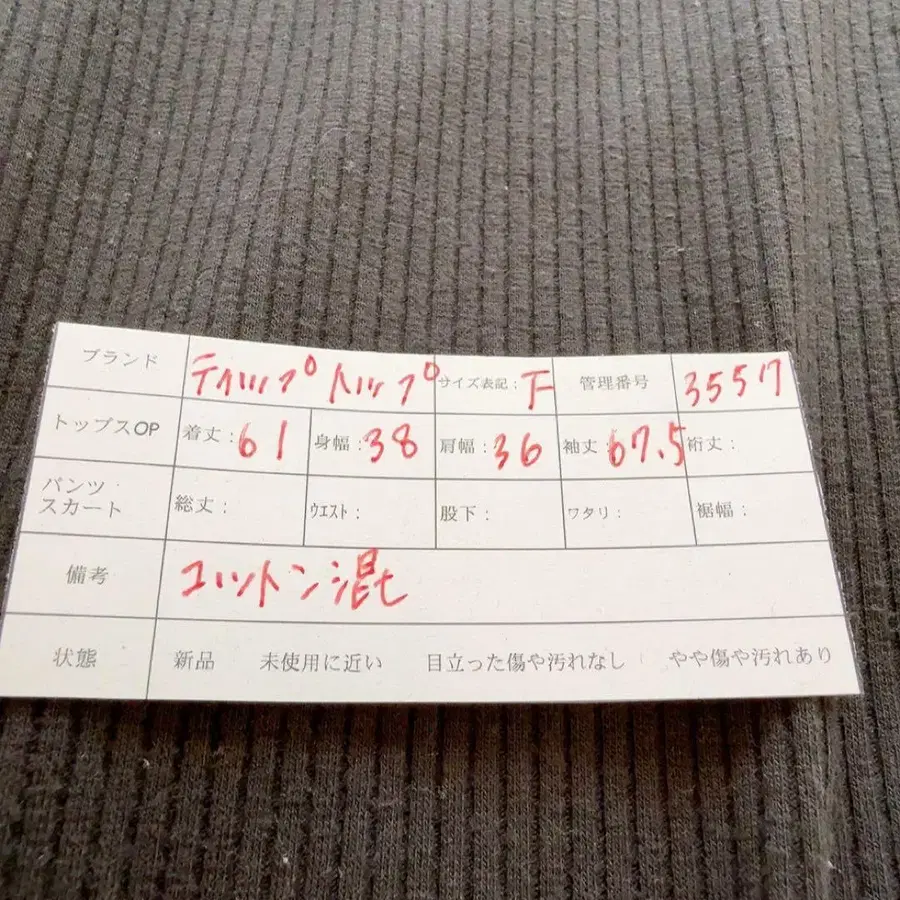 ブランド ティップトップ サイズ表記: F 管理番号 3557
トップスOP 着丈:61 身幅:38 肩幅:36 袖丈:67.5 裄丈:
パンツ・スカート 総丈: ウエスト: 股下: ワタリ: 裾幅:
備考 コットン混
状態 新品 未使用に近い 目立った傷や汚れなし やや傷や汚れあり